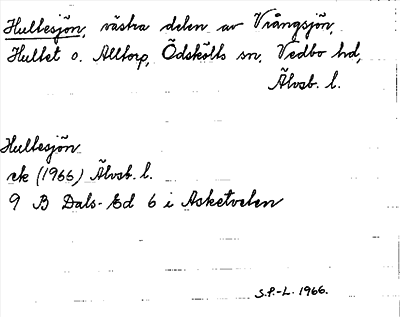 Hultesjön, västra delen av Vrångsjön,
Hultet o. Alltorp, Ödskölts sn, Vedbo hd,
Älvsb. l.
Hultesjön
ek (1966) Älvsb. l.
9 B Dals-Ed 6 i Asketvelen
S.P.-L. 1966.